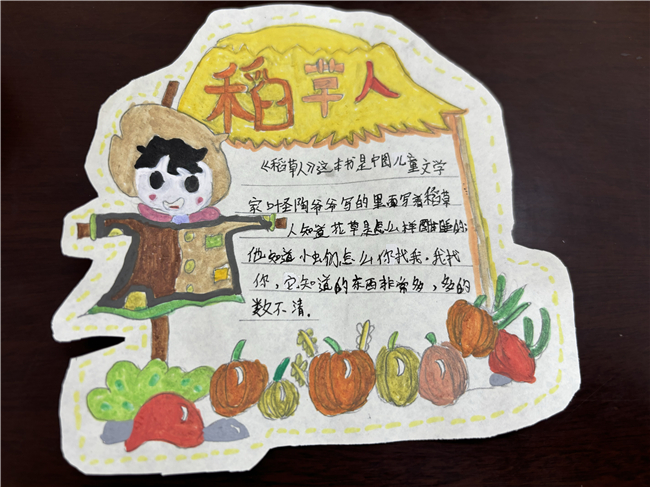 稻草人
《稻草人》这本书是中国儿童文学
家叶圣陶爷爷写的里面写着稻草
人知道花草是怎么样酣睡的;
他知道小虫们怎么你找我、我找
你，它知道的东西非常多，多的
数不清.